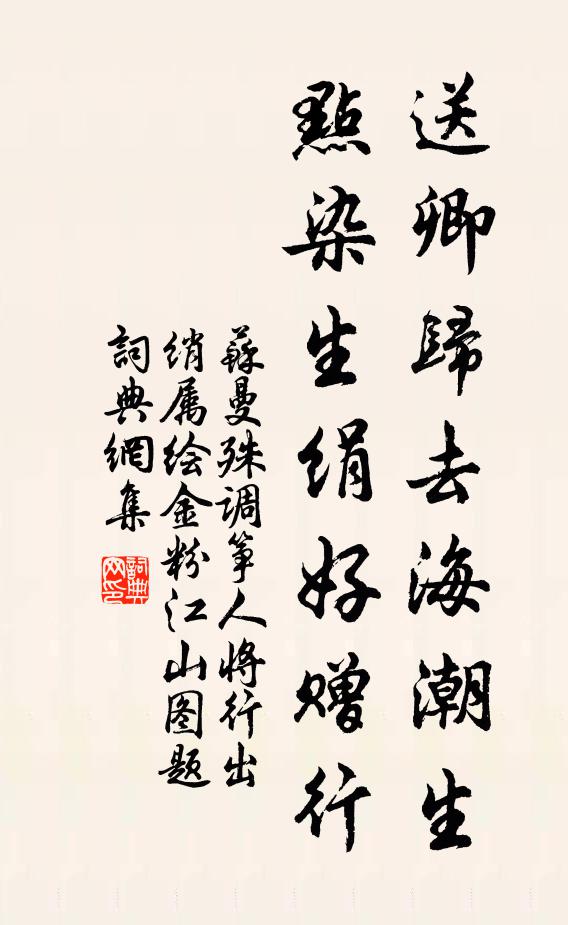 送卿歸去海潮生
點染生绢好赠行
蘇曼殊调筝人將行出
绡属绘金粉江山图题
詞典網集
詞典網印